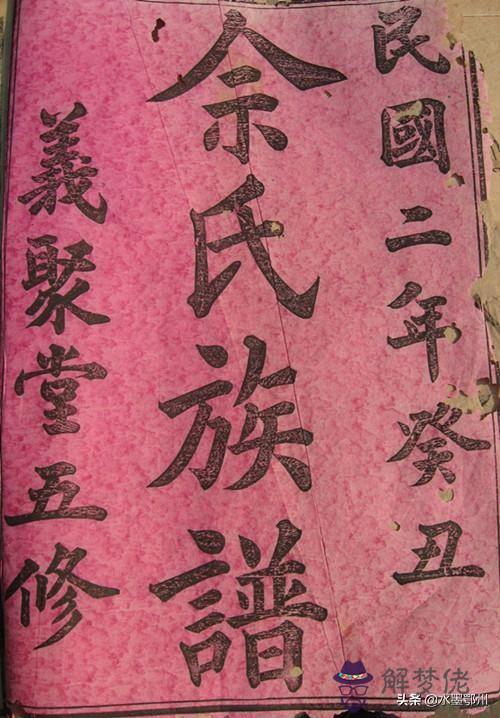 民國二年癸丑
佘氏族譜
義聚堂五修
解梦佬
头条 @水墨鄂州